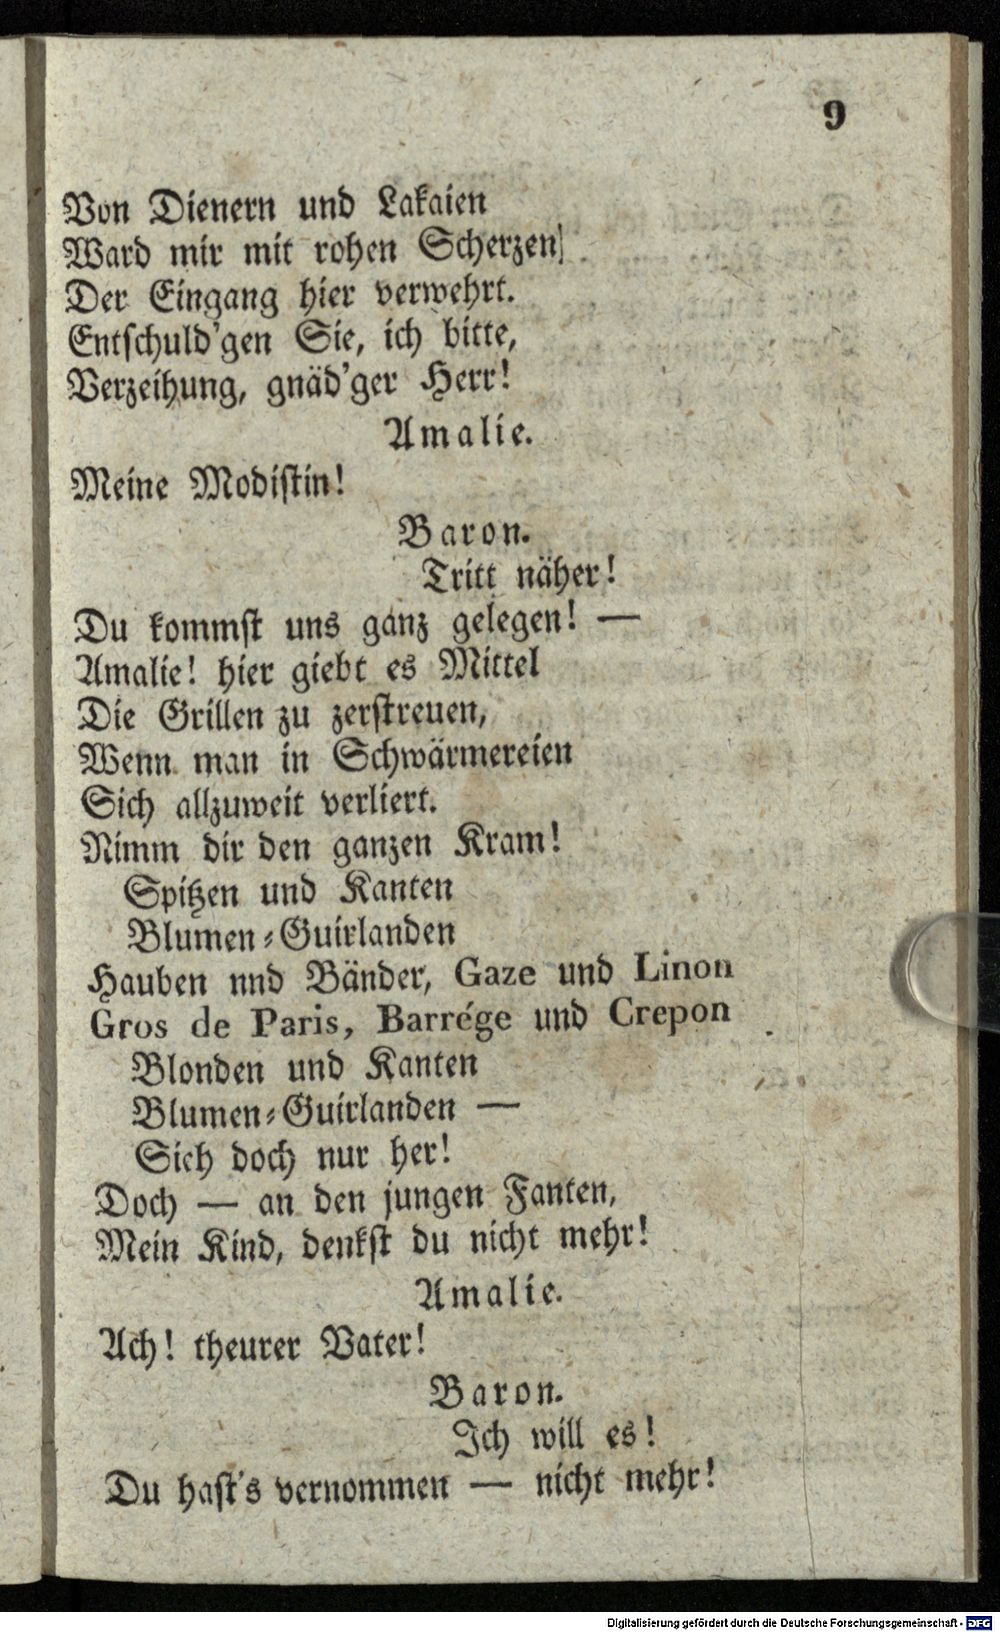 9
Von Dienern und Lakaien
Ward mir mit rohen Scherzen
Der Eingang hier verwehrt.
Entschuld'gen Sie, ich bitte,
Verzeihung, gnäd'ger Herr!
Amalie.
Meine Modistin!
Baron.
Tritt näher!
Du kommst uns ganz gelegen! —
Amalie! hier giebt es Mittel
Die Grillen zu zerstreuen,
Wenn man in Schwärmereien
Sich allzuweit verliert.
Nimm dir den ganzen Kram!
Spitzen und Kanten
Blumen-Guirlanden
Hauben nnd Bänder, Gaze und Linon
Gros de Paris, Barrége und Crepon
Blonden und Kanten
Blumen-Guirlanden —
Sieh doch nur her!
Doch — an den jungen Fanten,
Mein Kind, denkst du nicht mehr!
Amalie.
Ach! theurer Vater!
Baron.
Ich will es!
Du hast's vernommen — nicht mehr!
Digitalisierung gefördert durch die Deutsche Forschungsgemeinschaft - DFG